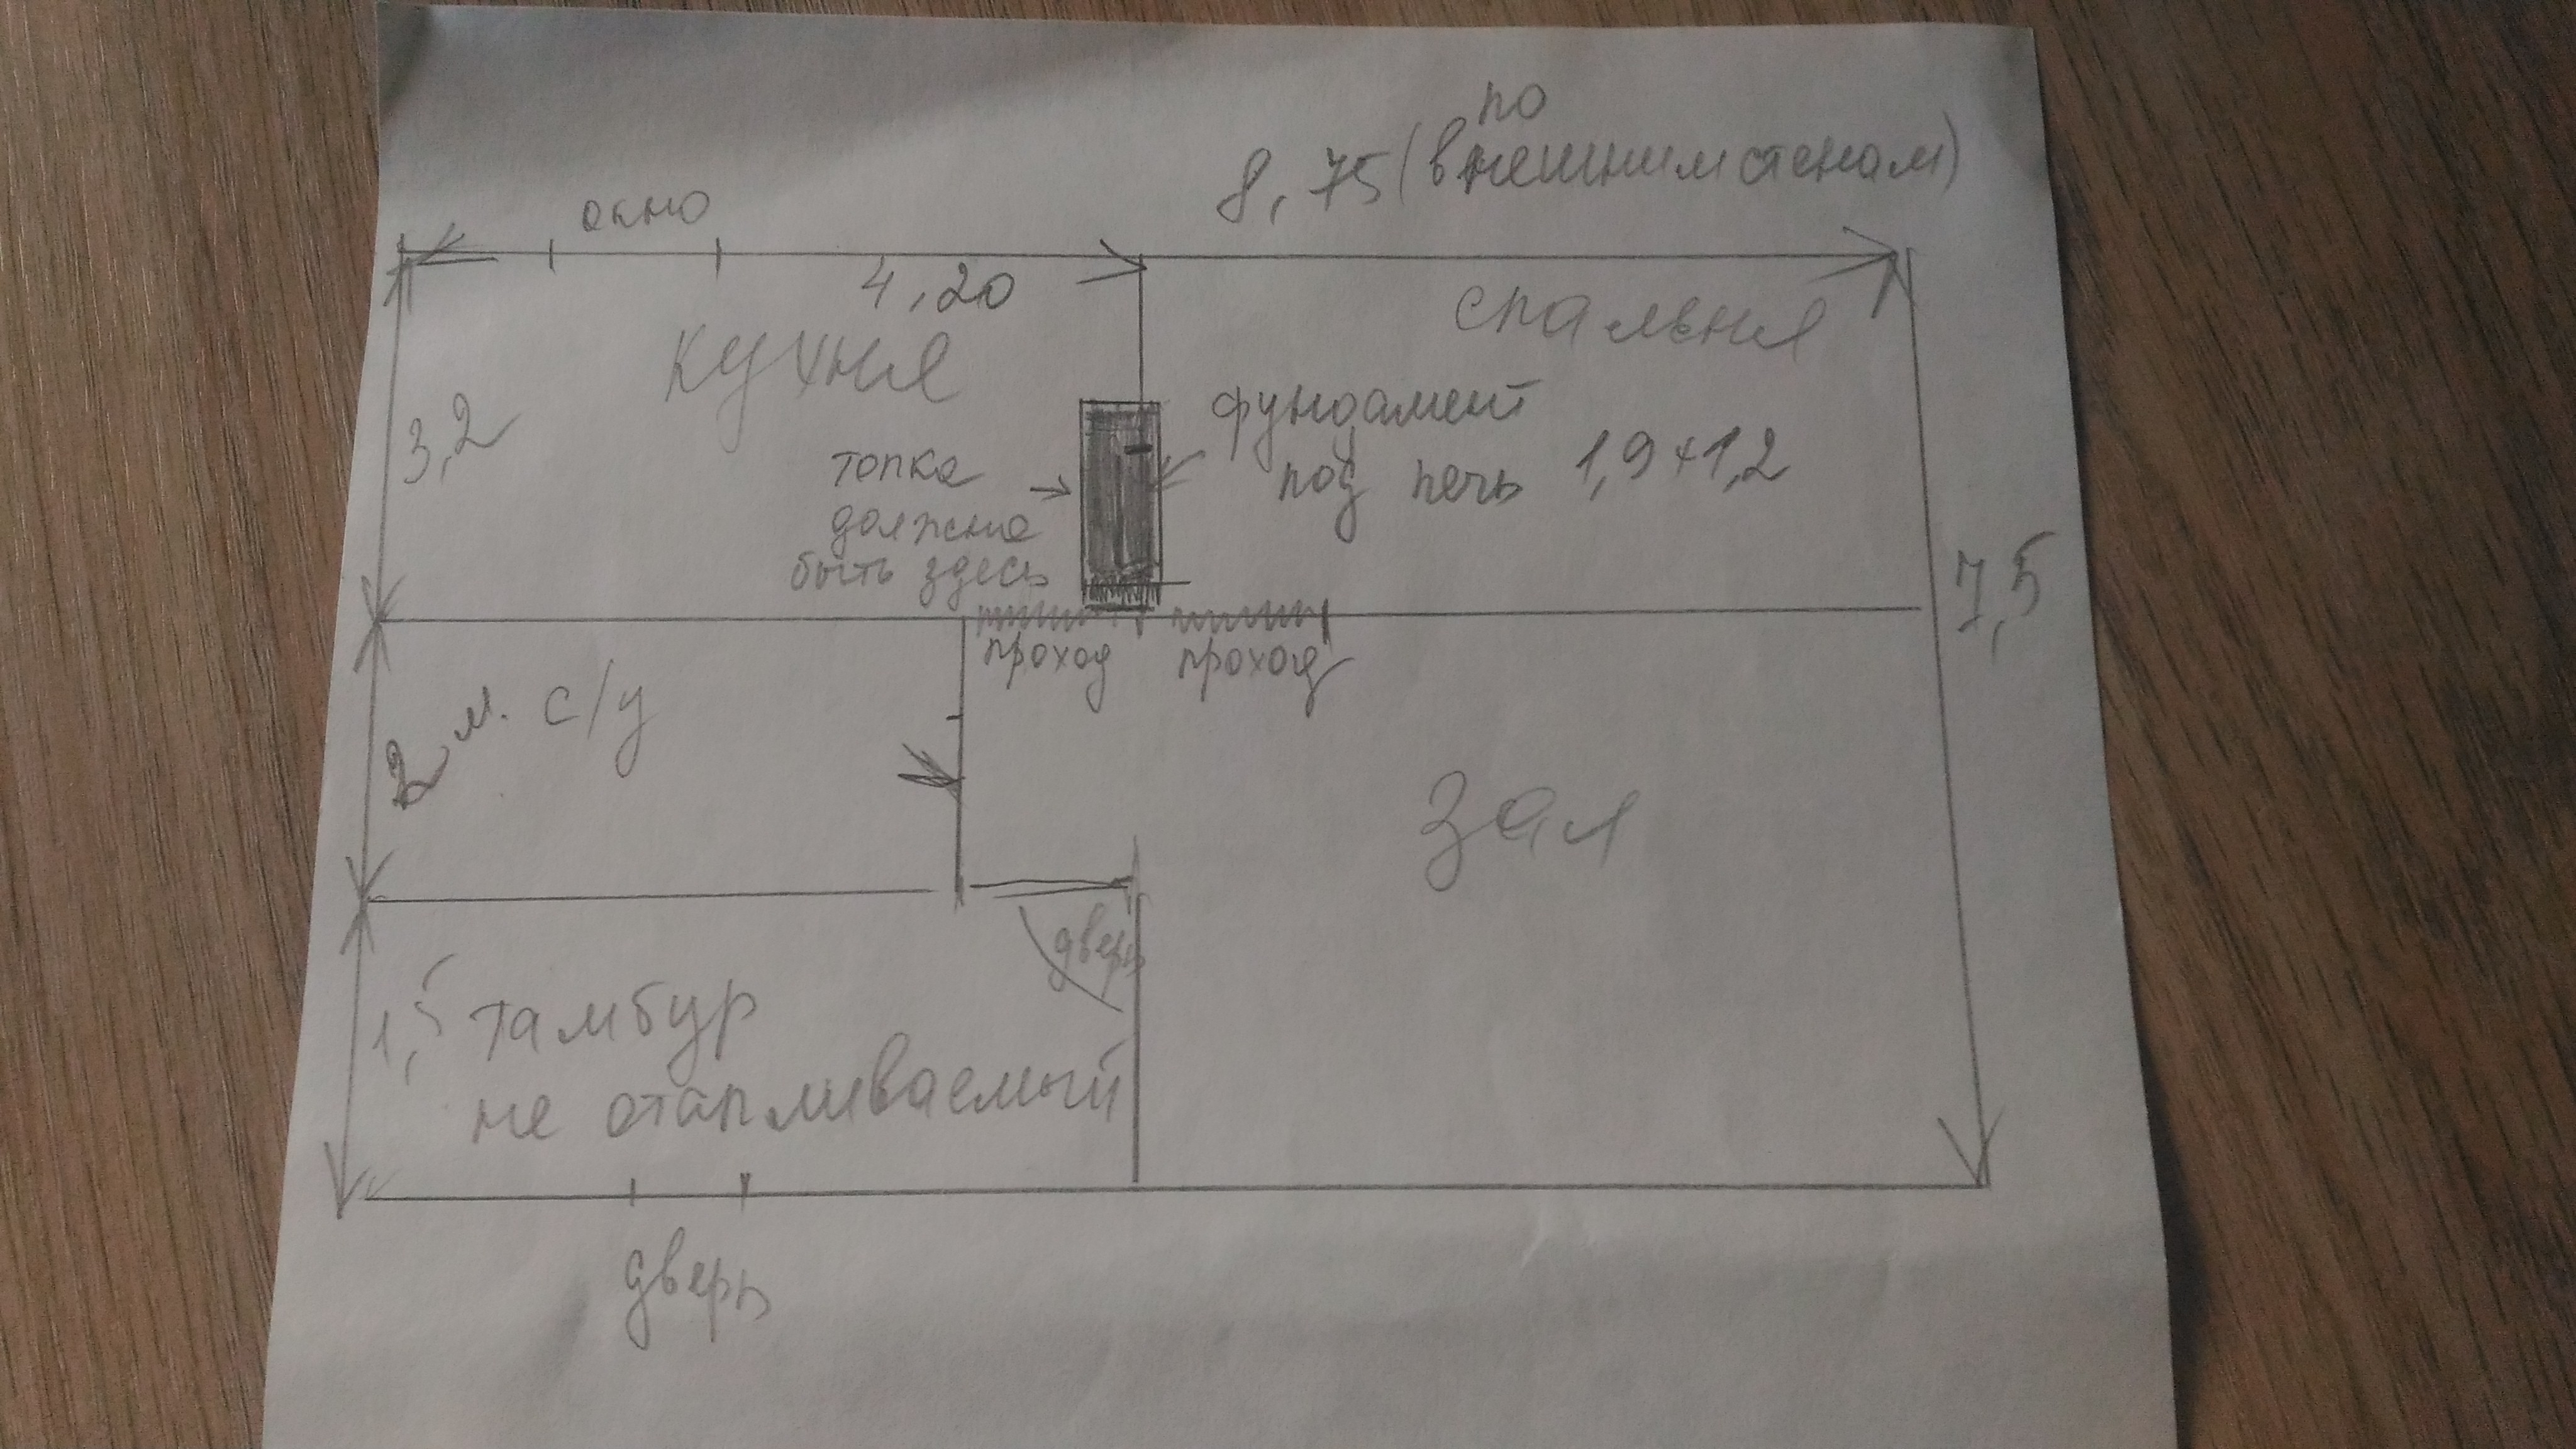 по
8,75 (внешним стенам)
окно
4,20
кухня
спальня
3,2
фундамент
под печь 1,9×1,2
топка
должна
быть здесь
7,5
проход
проход
2 м. с/у
зал
дверь
1,5 тамбур
не отапливаемый
дверь